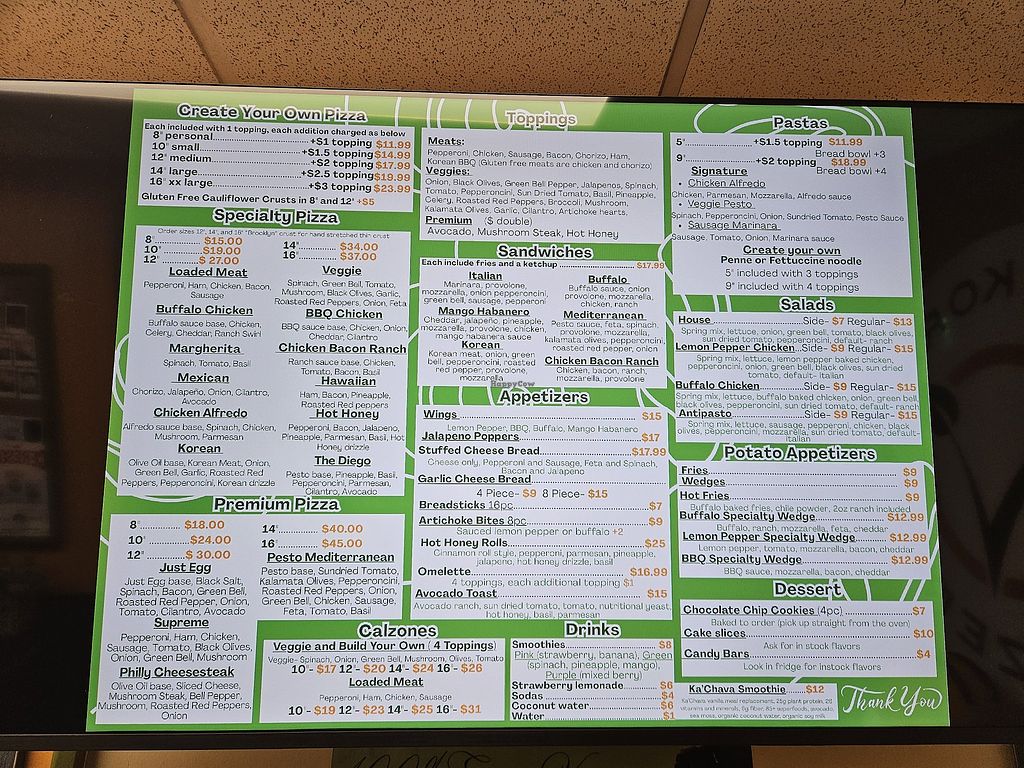 Create Your Own Pizza
Each included with 1 topping, each addition charged as below
8" personal..............+$1 topping $11.99
10" small..................+$1.5 topping $14.99
12" medium..................+$2 topping $17.99
14" large..................+$2.5 topping $19.99
16" xx large..................+$3 topping $23.99
Gluten Free Cauliflower Crusts in 8" and 12" +$5
Specialty Pizza
Order sizes 12", 14", and 16" "Brooklyn" crust for hand stretched thin crust
8"............$15.00
10"............$19.00
12"............$ 27.00
14"............$34.00
16"............$37.00
Loaded Meat
Pepperoni, Ham, Chicken, Bacon,
Sausage
Buffalo Chicken
Buffalo sauce base, Chicken,
Celery, Cheddar, Ranch Swirl
Margherita
Spinach, Tomato, Basil
Mexican
Chorizo, Jalapeño, Onion, Cilantro,
Avocado
Chicken Alfredo
Alfredo sauce base, Spinach, Chicken,
Mushroom, Parmesan
Korean
Olive Oil base, Korean Meat, Onion,
Green Bell, Garlic, Roasted Red
Peppers, Pepperoncini, Korean drizzle
Veggie
Spinach, Green Bell, Tomato,
Mushroom, Black Olives, Garlic,
Roasted Red Peppers, Onion, Feta
BBQ Chicken
BBQ sauce base, Chicken, Onion,
Cheddar, Cilantro
Chicken Bacon Ranch
Ranch sauce base, Chicken,
Tomato, Bacon, Basil
Hawaiian
Ham, Bacon, Pineapple,
Roasted Red peppers
Hot Honey
Pepperoni, Bacon, Jalapeno,
Pineapple, Parmesan, Basil, Hot
Honey drizzle
The Diego
Pesto base, Pineapple, Basil,
Pepperoncini, Parmesan,
Cilantro, Avocado
Premium Pizza
8"............$18.00
10"............$24.00
12"............$ 30.00
14"............$40.00
16"............$45.00
Just Egg
Just Egg base, Black Salt,
Spinach, Bacon, Green Bell,
Roasted Red Pepper, Onion,
Tomato, Cilantro, Avocado
Supreme
Pepperoni, Ham, Chicken,
Sausage, Tomato, Black Olives,
Onion, Green Bell, Mushroom
Philly Cheesesteak
Olive Oil base, Sliced Cheese,
Mushroom Steak, Bell Pepper,
Mushroom, Roasted Red Peppers,
Onion
Pesto Mediterranean
Pesto base, Sundried Tomato,
Kalamata Olives, Pepperoncini,
Roasted Red Pepper, Onion,
Green Bell, Chicken, Sausage,
Feta, Tomato, Basil
Toppings
Meats:
Pepperoni, Chicken, Sausage, Bacon, Chorizo, Ham,
Korean BBQ (Gluten free meats are chicken and chorizo)
Veggies:
Onion, Black Olives, Green Bell Pepper, Jalapenos, Spinach,
Tomato, Pepperoncini, Sun Dried Tomato, Basil, Pineapple,
Celery, Roasted Red Peppers, Broccoli, Mushroom,
Kalamata Olives, Garlic, Cilantro, Artichoke hearts,
Premium ($ double)
Avocado, Mushroom Steak, Hot Honey
Sandwiches
Each include fries and a ketchup..................$17.99
Italian
Marinara, provolone,
mozzarella, onion pepperoncini,
green bell, sausage, pepperoni
Mango Habanero
Cheddar, jalapeño, pineapple,
mozzarella, provolone, chicken,
mango habanero sauce
Korean
Korean meat, onion, green
bell, pepperoncini, roasted
red pepper, provolone,
mozzarella
Buffalo
Buffalo sauce, onion
provolone, mozzarella,
chicken, ranch
Mediterranean
Pesto sauce, feta, spinach,
provolone, mozzarella,
kalamata olives, pepperoncini,
roasted red pepper, onion
Chicken Bacon Ranch
Chicken, bacon, ranch,
mozzarella, provolone
HappyCow
Appetizers
Wings..................$15
Lemon Pepper, BBQ, Buffalo, Mango Habanero
Jalapeno Poppers..................$17
Stuffed Cheese Bread..................$17.99
Cheese only, Pepperoni and Sausage, Feta and Spinach,
Bacon and Jalapeno
Garlic Cheese Bread..................
4 Piece- $9 8 Piece- $15
Breadsticks 16pc..................$7
Artichoke Bites 8pc..................$9
Sauced lemon pepper or buffalo +2
Hot Honey Rolls..................$25
Cinnamon roll style, pepperoni, parmesan, pineapple,
jalapeno, hot honey drizzle, basil
Omelette..................$16.99
4 toppings, each additional topping $1
Avocado Toast..................$15
Avocado ranch, sun dried tomato, tomato, nutritional yeast,
hot honey, basil, parmesan
Calzones
Veggie and Build Your Own ( 4 Toppings)
Veggie- Spinach, Onion, Green Bell, Mushroom, Olives, Tomato
10"- $17 12"- $20 14"- $24 16"- $26
Loaded Meat
Pepperoni, Ham, Chicken, Sausage
10"- $19 12"- $23 14"- $25 16"- $31
Drinks
Smoothies..................$8
Pink (strawberry, banana), Green
(spinach, pineapple, mango),
Purple (mixed berry)
Strawberry lemonade..................$6
Sodas..................$4
Coconut water..................$6
Water..................$1
Pastas
5"..................+$1.5 topping $11.99
Bread bowl +3
9"..................+$2 topping $18.99
Bread bowl +4
Signature
• Chicken Alfredo
Chicken, Parmesan, Mozzarella, Alfredo sauce
• Veggie Pesto
Spinach, Pepperoncini, Onion, Sundried Tomato, Pesto Sauce
• Sausage Marinara
Sausage, Tomato, Onion, Marinara sauce
Create your own
Penne or Fettuccine noodle
5" included with 3 toppings
9" included with 4 toppings
Salads
House..................Side- $7 Regular- $13
Spring mix, lettuce, onion, green bell, tomato, black olives,
sun dried tomato, pepperoncini, default- ranch
Lemon Pepper Chicken...Side- $9 Regular- $15
Spring mix, lettuce, lemon pepper baked chicken,
pepperoncini, onion, green bell, black olives, sun dried
tomato, default- Italian
Buffalo Chicken..................Side- $9 Regular- $15
Spring mix, lettuce, buffalo baked chicken, onion, green bell,
black olives, pepperoncini, sun dried tomato, default- ranch
Antipasto..................Side- $9 Regular- $15
Spring mix, lettuce, sausage, pepperoni, chicken, black
olives, pepperoncini, mozzarella, sun dried tomato, default-
italian
Potato Appetizers
Fries..................$9
Wedges..................$9
Hot Fries..................$9
Buffalo baked fries, chile powder, 2oz ranch included
Buffalo Specialty Wedge..................$12.99
Buffalo, ranch, mozzarella, feta, cheddar
Lemon Pepper Specialty Wedge..........$12.99
Lemon pepper, tomato, mozzarella, bacon, cheddar
BBQ Specialty Wedge..................$12.99
BBQ sauce, mozzarella, bacon, cheddar
Dessert
Chocolate Chip Cookies (4pc)..................$7
Baked to order (pick up straight from the oven)
Cake slices..................$10
Ask for in stock flavors
Candy Bars..................$4
Look in fridge for instock flavors
Ka'Chava Smoothie.....$12
Ka'Chava vanilla meal replacement, 25g plant protein, 26
vitamins and minerals, 6g fiber, 85+ superfoods, avocado,
sea moss, organic coconut water, organic soy milk
Thank You